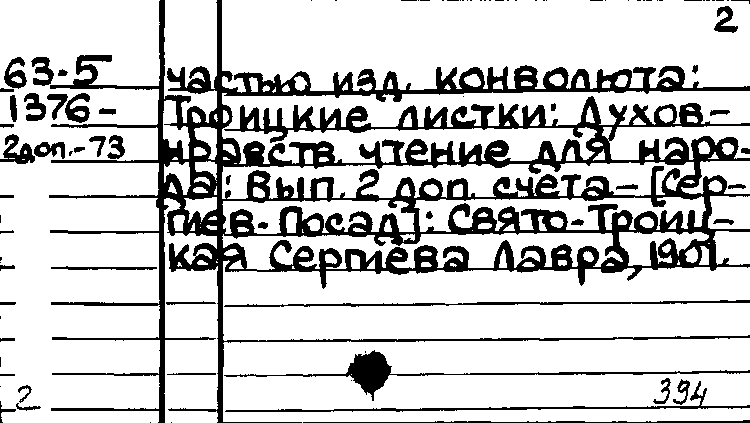 2
63-5 частью изд. конволюта:
1376- Троицкие листки: Духов.-
2доп.-73 нравств. чтение для наро-
да: Вып. 2 доп. счёта - [Сер-
гиев-Посад]: Свято-Троиц-
кая Сергиева Лавра, 1901.
2 394